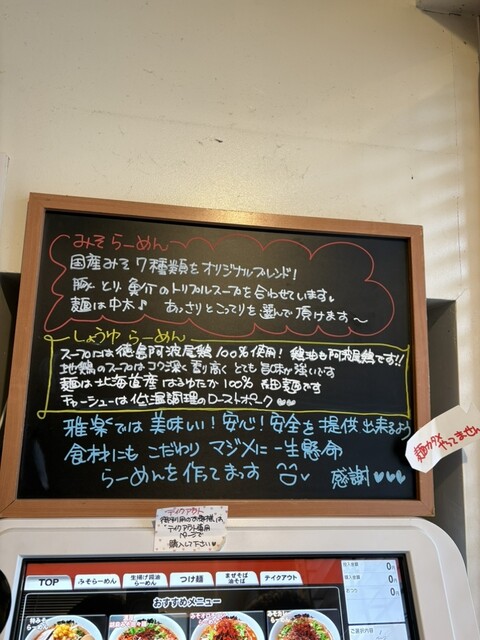 みそらーめん
国産みそ7種類をオリジナルブレンド!
豚、とり、魚介のトリプルスープを合わせています。
麺は中太♪ あっさりとこってりを選んで頂けます〜
しょうゆらーめん
スープには徳島阿波尾鶏100%使用! 鶏油も阿波尾鶏です!!
地鶏のスープはコク深く香り高く とても旨味が強いです
麺は北海道産はるゆたか100% 細麺です
チャーシューは低温調理のローストポーク♡♡
雅楽では美味い!安心!安全を提供出来るよう
食材にもこだわり マジメに一生懸命
らーめんを作ってます
感謝♡♡♡
麺カタメ やってません
テイクアウト
テイクアウト専用
ページで
購入して下さい♡
TOP
みそらーめん
生揚げ醤油らーめん
つけ麺
まぜそば
油そば
テイクアウト
おすすめメニュー
投入金額
0円
0円
0円